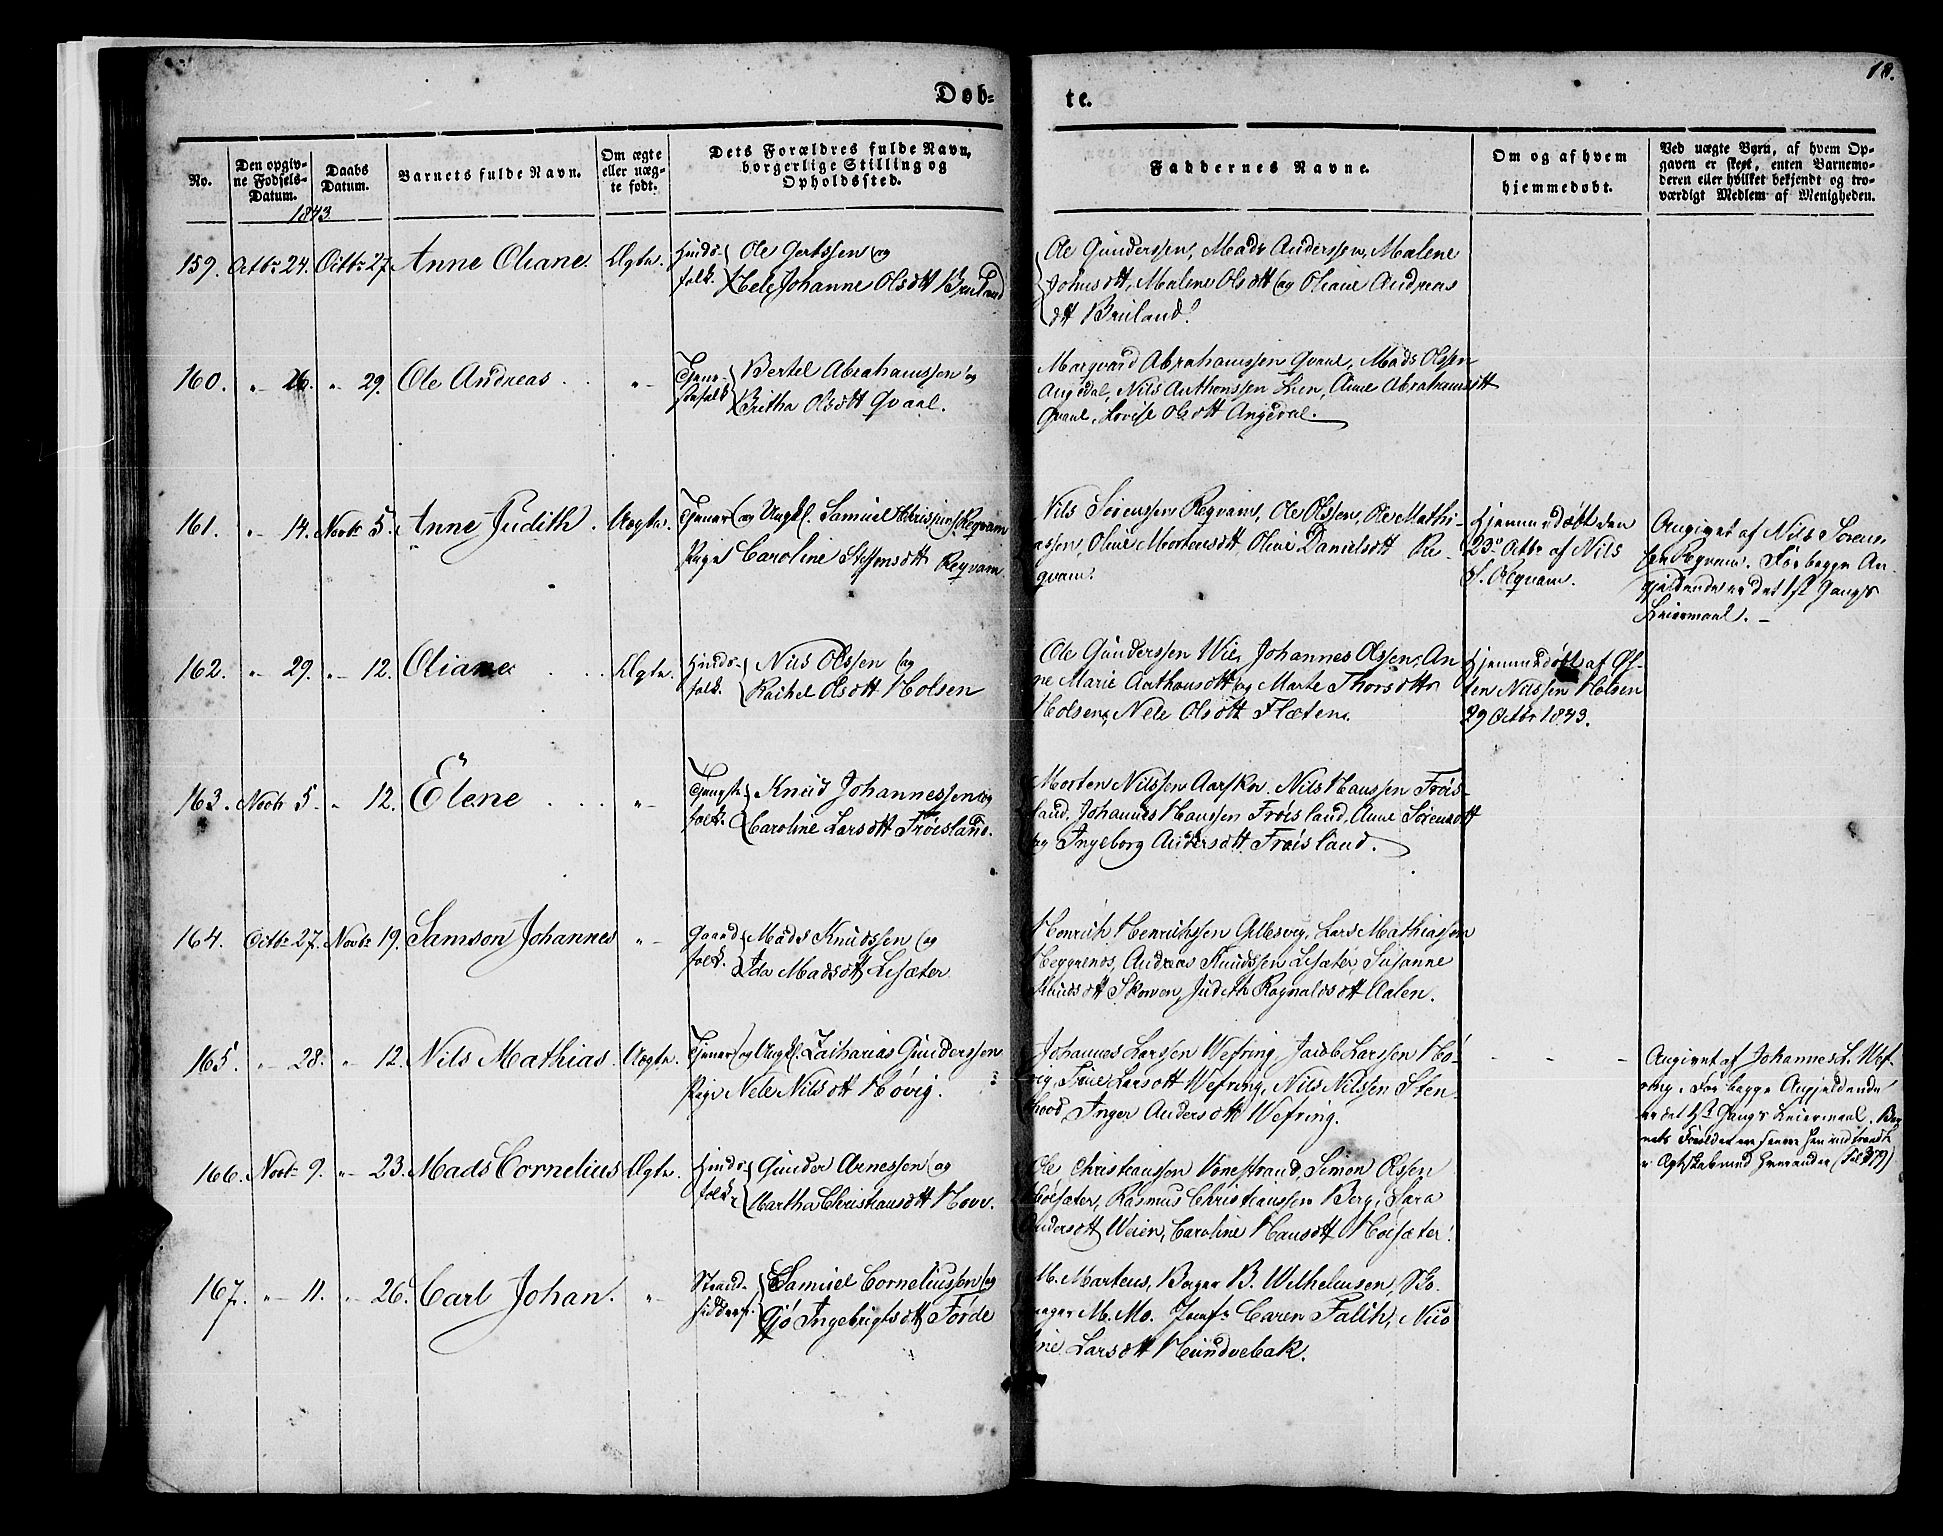 Døb-
te.
18.
No.
Den opgiv-
ne Fødsels-
Datum.
Daabs
Datum.
Barnets fulde Navn.
Om ægte
eller uæg-
te født.
Dets Forældres fulde Navn,
borgerlige Stilling og
Opholdssted.
Faddernes Navne.
Om og af hvem
hjemmedøbt.
Ved uægte Byrn, af hvem Op-
gaven er skeet, enten Barnemo-
deren eller hvilket bekjendt og tro-
værdigt Medlem af Menigheden.
1843
159. Octbr 24. Octbr 27. Anne Oliane. Ægte. Huus- Ole Gertssen og
folk. Nele Johanne Olsdtt Bruland
Ole Gunderssen, Mads Anderssen, Malene
Johnsdtt, Malene Olsdtt og Oliane Andreas
dtt Bruland.
160. " 26. " 29. Ole Andreas " Tjene- Bertel Abrahamssen og
stefolk Britha Olsdtt Qvaal.
Marqvard Abrahamssen Qvaal, Mads Olssen
Angedal, Nils Anthonssen Lien, Anne Abrahamsdtt
Qvaal, Lovise Olsdtt Angedal.
161. " 14. Novbr 5. Anne Judith. Uægte. Tjener og Ungkl. Samuel Chrispins. Reqvam
Pige Caroline Steffensdtt Reqvam.
Nils Sørenssen Reqvam, Ole Olssen, Ole Mathi-
assen, Oline Mortensdtt, Oline Danielsdtt Re-
qvam.
Hjemmedøbt den
23de Octbr af Nils
S. Reqvam.
Angivet af Nils Søren-
sen Reqvam. For begge An-
gjeldende er det 1ste Gangs
Leiermaal.
162. " 29. " 12. Oliane Ægte. Huus- Nils Olssen og
folk. Rachel Olsdtt Holsen
Ole Gunderssen Wie, Johannes Olssen, An
ne Marie Anthonsdtt og Marte Thorsdtt
Holsen, Nele Olsdtt Flæten.
Hjemmedøbt af
Nilssen Holsen
29 Octbr 1843.
163. Novbr 5. " 12. Elene " Knud Johannessen og
folk. Caroline Larsdtt Frøisland.
Morten Nilssen Aarskn. Nils Hanssen Frøis-
land, Johannes Hanssen Frøisland, Anne Sørensdtt
og Ingeborg Andersdtt Frøisland.
164. Octbr 27. Novbr 19. Samson Johannes " Gaard Mads Knudssen og
folk. Ida Madsdtt Lisæter
Henrich Henrichssen Gilesvig, Lars Mathiassen
Heggenes, Andreas Knudssen Lisæter, Susanne
Knudsdtt Skoven, Judith Ragnaldsdtt Aalen.
165. " 28. " 12. Nils Mathias. Uægte. Tjener og Ungkl. Zacharias Gunderssen
Pige Nele Nilsdtt Høvig.
Johannes Larssen Wefring, Jacob Larssen Hø-
vig, Larsdtt Wefring, Nils Nilssen Sten-
hood, Inger Andersdtt Wefring.
Angivet af Johannes L. Wef-
ring. For begge Angjeldende
er det 1ste Gangs Leiermaal. Bar
nets Forældre ere senere hen indtraadt
i Ægteskab med hverandre (Fol 379)
166. Novbr 9. " 23. Mads Cornelius Ægte. Huus- Gunder Arnessen og
folk. Martha Christiansdtt Hove.
Ole Christianssen Vonestrand, Simon Olssen
Hoisæter, Rasmus Christianssen Berg, Sara
Andersdtt Weien, Caroline Hansdtt Hoisæter.
167. " 11. " 26. Carl Johan. " Strand- Samuel Corneliussen og
siddere. Gjø Ingebrigtsdtt Førde
M. Martens, Borger B. Wilhelmsen, Sko-
mager M. Mo. Jomfr. Caren Falch, Nico
line Larsdtt Hundvebak.